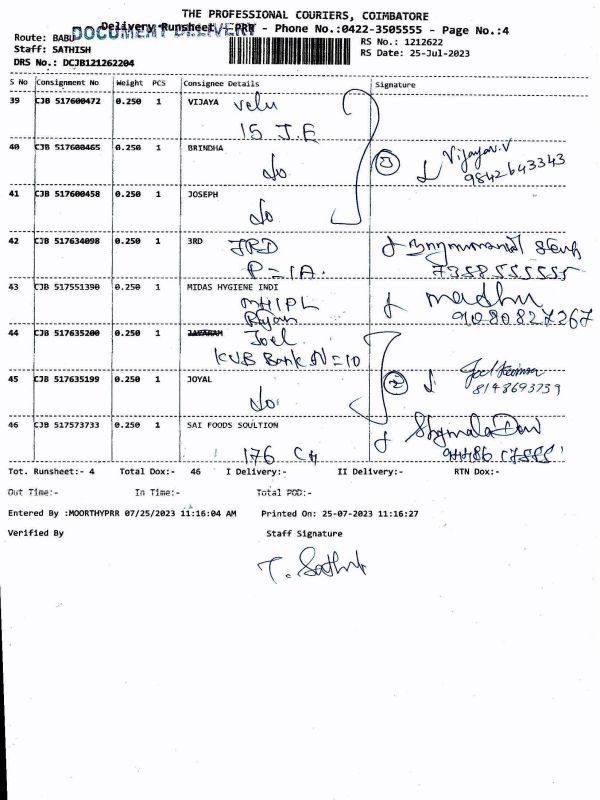 THE PROFESSIONAL COURIERS, COIMBATORE
DOCUMENT DELIVERY
Delivery Runsheet - PRR - Phone No.:0422-3505555 - Page No.:4
Route: BABU
RS No.: 1212622
Staff: SATHISH
RS Date: 25-Jul-2023
DRS No.: DCJB121262204
S No Consignment No Weight PCS Consignee Details Signature
39 CJB 517600472 0.250 1 VIJAYA velu
15 J.E
40 CJB 517600465 0.250 1 BRINDHA
do
1 Vijayan.V
9842643343
41 CJB 517600458 0.250 1 JOSEPH
do
42 CJB 517634098 0.250 1 3RD JRD
P=1A.
7358555555
43 CJB 517551390 0.250 1 MIDAS HYGIENE INDI madhu
MHIPL
9080827267
44 CJB 517635200 0.250 1 JAYARAM Joel
KVB Bank N=10
45 CJB 517635199 0.250 1 JOYAL
do
2
8148693739
46 CJB 517573733 0.250 1 SAI FOODS SOULTION Shymala Devi
176 CH
Tot. Runsheet:- 4 Total Dox:- 46 I Delivery:- II Delivery:- RTN Dox:-
Out Time:- In Time:- Total POD:-
Entered By :MOORTHYPRR 07/25/2023 11:16:04 AM Printed On: 25-07-2023 11:16:27
Verified By Staff Signature
T. Sathish